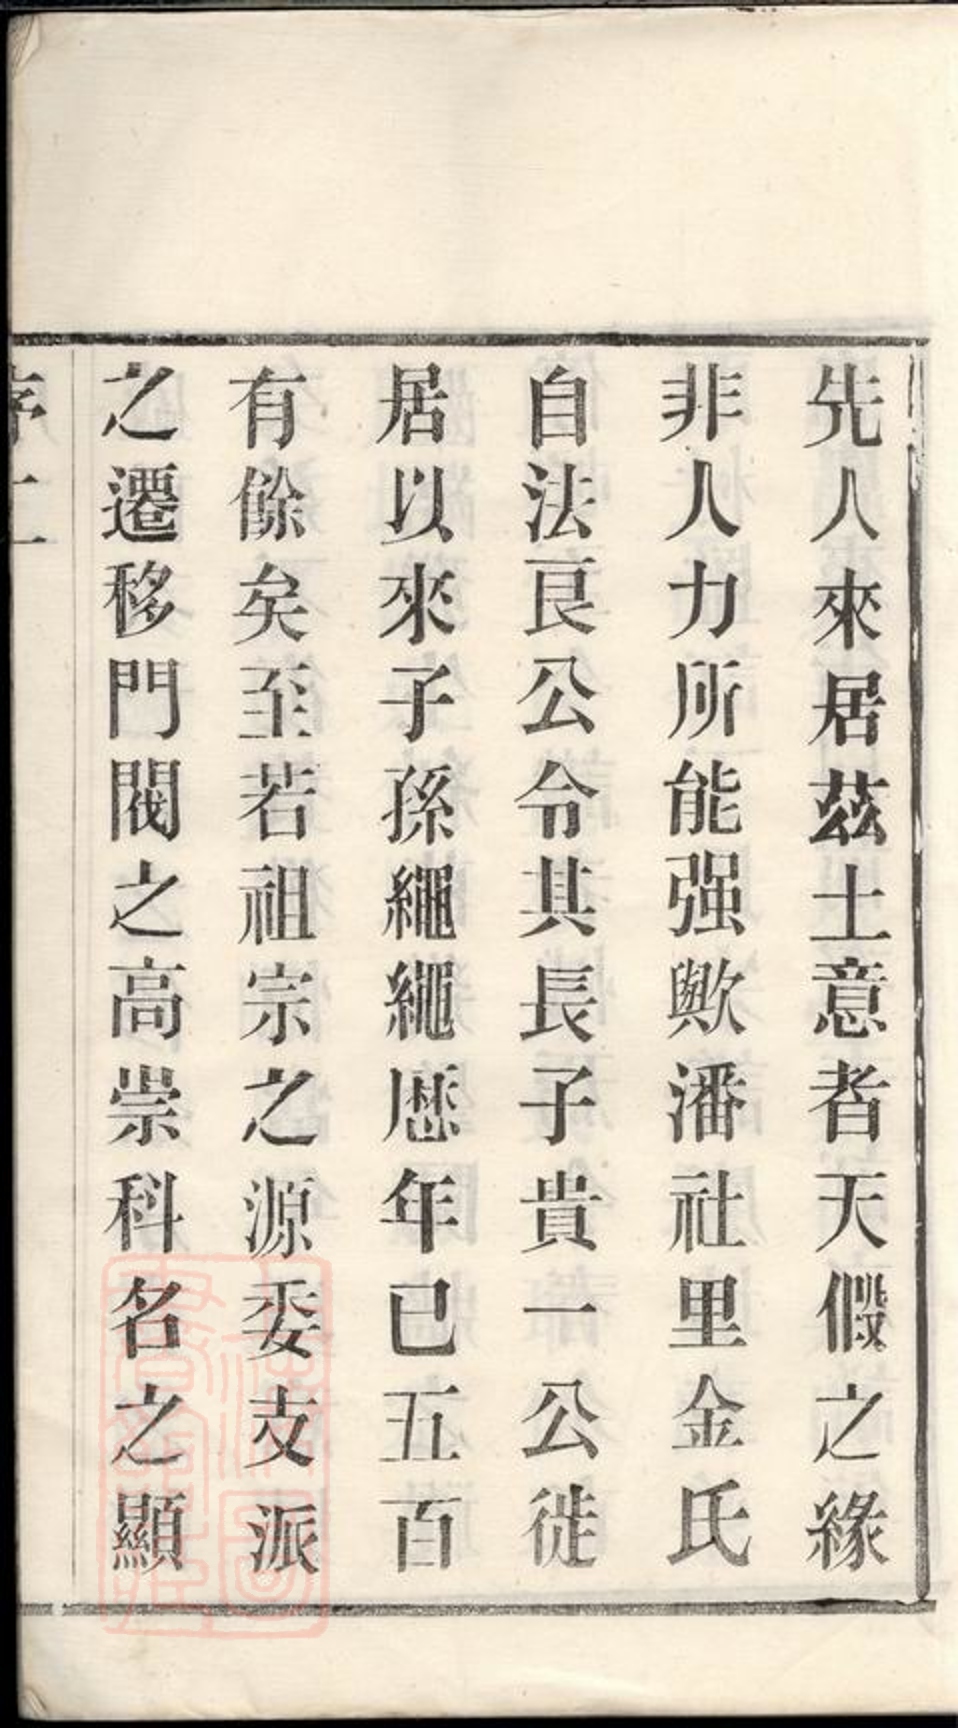 先人來居茲土意者天假之緣
非人力所能强歟潘社里金氏
自法良公令其長子貴一公徙
居以來子孫繩繩歷年已五百
有餘矣至若祖宗之源委支派
之遷移門閥之高崇科名之顯
序二